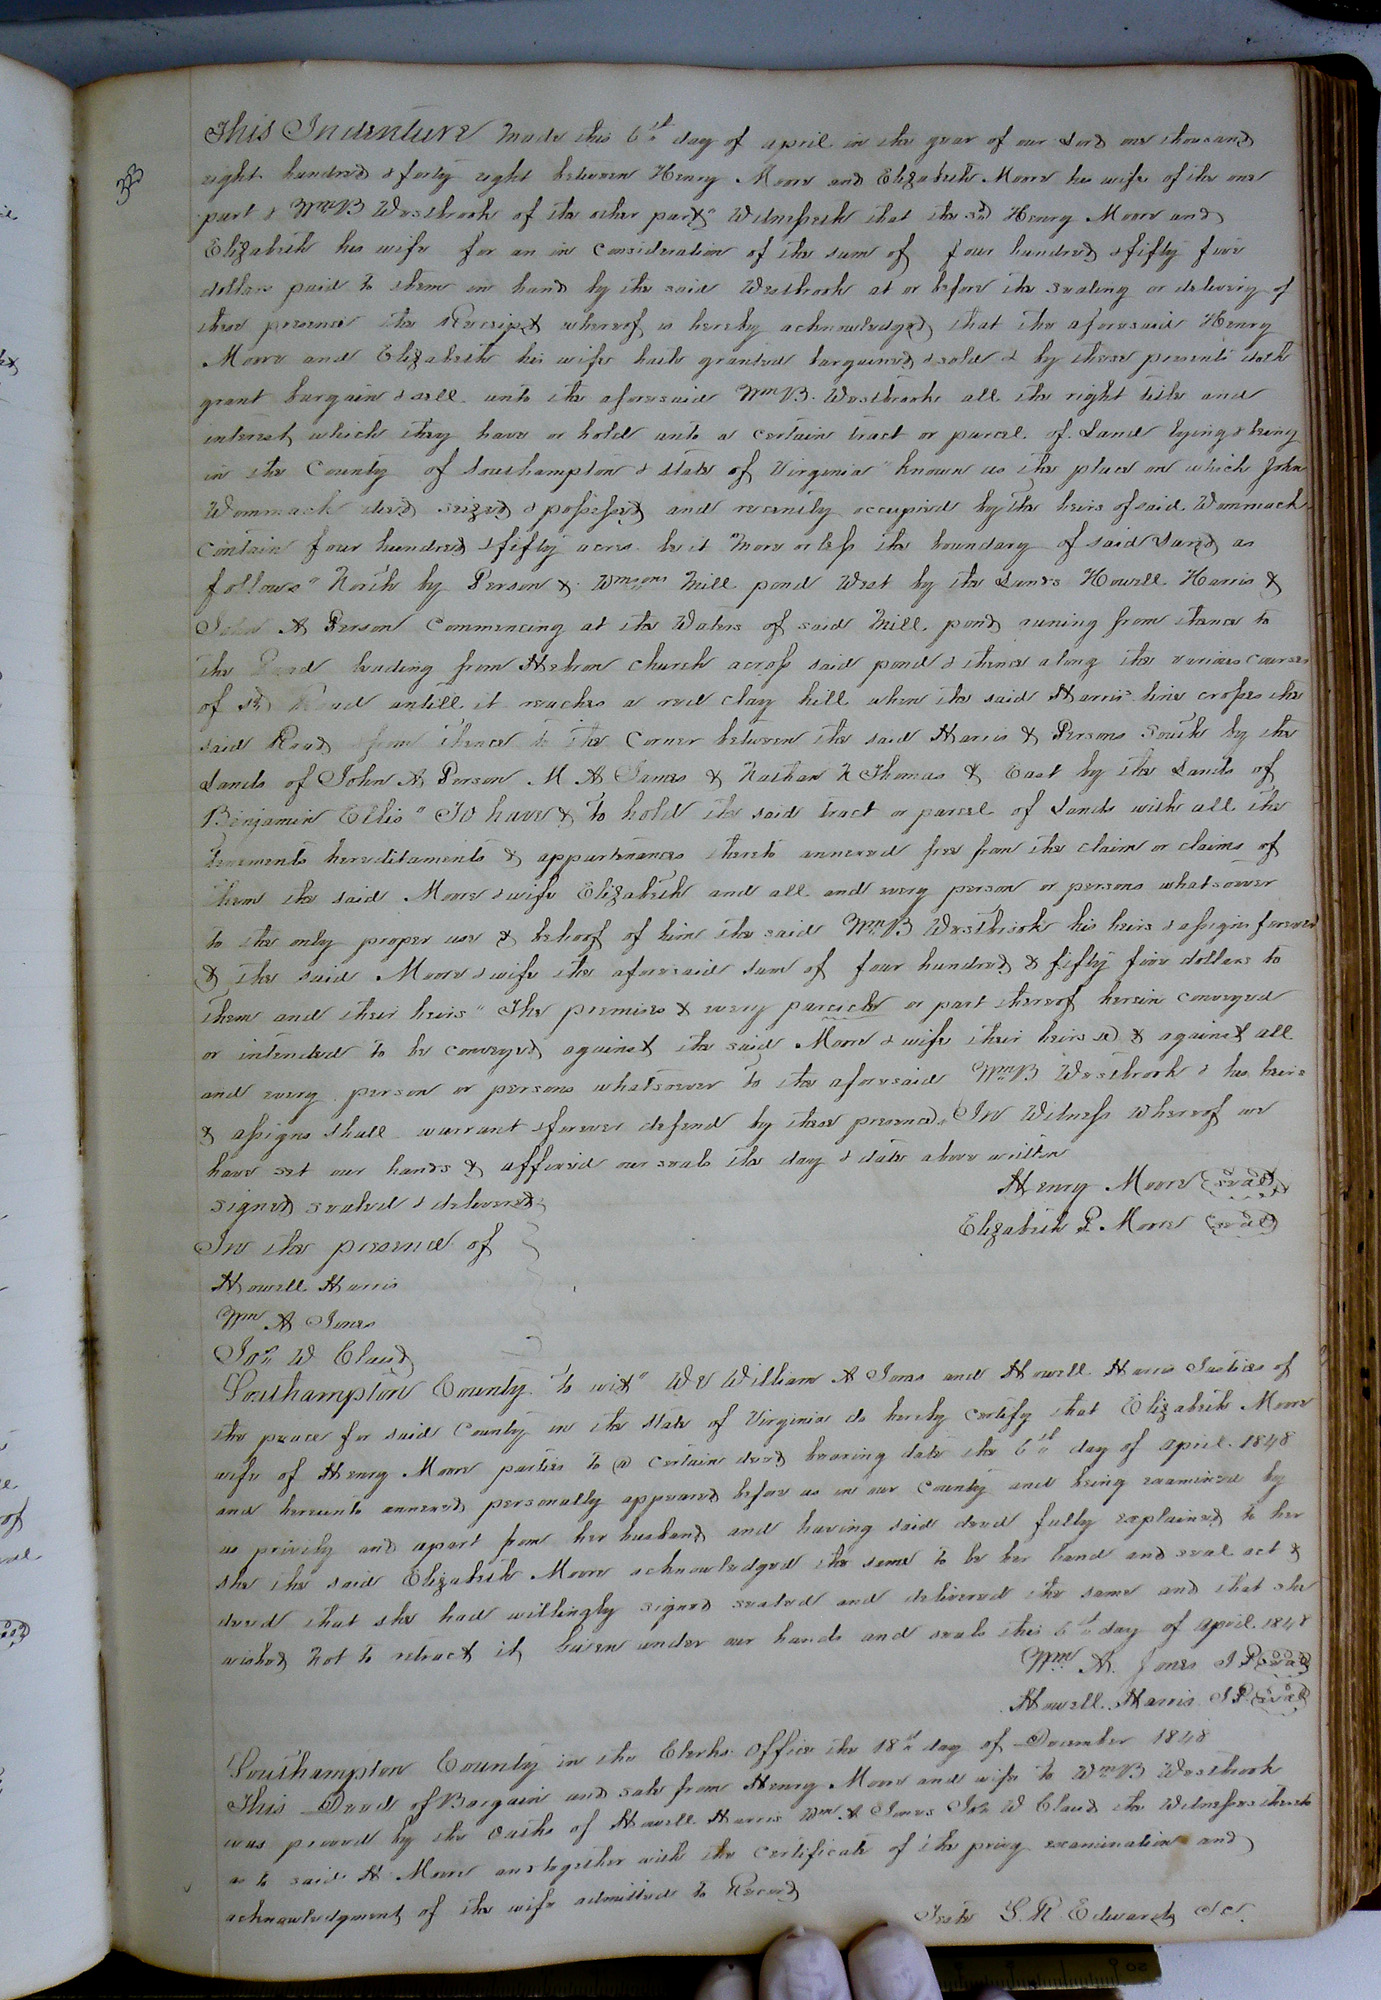 333
This Indenture Made this 6th day of april in the year of our Lord one thousand
eight hundred & forty eight between Henry Moore and Elizabeth Moore his wife of the one
part & Wm B Westbrook of the other part" Witnesseth that the sd Henry Moore and
Elizabeth his wife for an in Consideration of the sum of four hundred & fifty five
dollars paid to them in hand by the said Westbrook at or before the sealing or delivery of
these presence the Receipt whereof is hereby acknowledged that the aforesaid Henry
Moore and Elizabeth his wife hath granted bargained & sold & by these presents doth
grant bargain & sell unto the aforesaid Wm B. Westbrook all the right title and
interest which they have or hold unto a certain tract or parcel of Land lying & being
in the County of Southampton & State of Virginia" known as the place on which John
Wommack died seized & possessed and recently occupied by the heirs of said Wommack
Contain four hundred & fifty acres be it More or less the boundary of said Land as
follows" North by Person & Wmsons Mill pond West by the Lands Howell Harris &
John A Person Commencing at the Waters of said Mill pond runing from thence to
the Road leading from Hebron Church across said pond & thence along the various courses
of sd Road untill it reaches a red clay hill when the said Harris' line crosses the
said Road & from thence to the Corner between the said Harris & Persons South by the
Lands of John A Person M A James & Nathan N Thomas & East by the Lands of
Benjamin Ellis" To have & to hold the said tract or parcel of Lands with all the
tenements hereditaments & appurtenances thereto annexed free from the claim or claims of
them the said Moore & wife Elizabeth and all and every person or persons whatsoever
to the only proper use & behoof of him the said Wm B Westbrook his heirs & assigns forever
& the said Moore & wife the aforesaid sum of four hundred & fifty five dollars to
them and their heirs" The premises & every parcicle or part thereof herein conveyed
or intended to be conveyed against the said Moore & wife their heirs & against all
and every person or persons whatsoever to the aforesaid Wm B Westbrook & his heirs
& assigns shall warrant & forever defend by these presence. In Witness whereof we
have set our hands & affixed our seals the day & date above written
Henry Moore Seal
signed sealed & delivered
Elizabeth P. Moore Seal
In the presence of
Howell Harris
Wm A Jones
Jos W Claud
Southampton County to wit" We William A Jones and Howell Harris Justices of
the peace for said County in the State of Virginia do hereby certify that Elizabeth Moore
wife of Henry Moore parties to a certain deed bearing date the 6th day of april 1848
and hereunto annexed personally appeared before us in our County and being examined by
us privily and apart from her husband and having said deed fully explained to her
she the said Elizabeth Moore acknowledged the same to be her hand and seal act &
deed that she had willingly signed sealed and delivered the same and that she
wished Not to retract it Given under our hands and seals this 6th day of april 1848
Wm A. Jones J P Seal
Howell Harris J P. Seal
Southampton County in the Clerks Office the 18th day of December 1848
This Deed of Bargain and sale from Henry Moore and wife to Wm B Westbrook
was proved by the oaths of Howell Harris Wm A Jones Jos W Claud the Witnesses thereto
as to said H Moore and together with the Certificate of the privy examination and
acknowledgment of the wife admitted to Record
Teste L. R Edwards